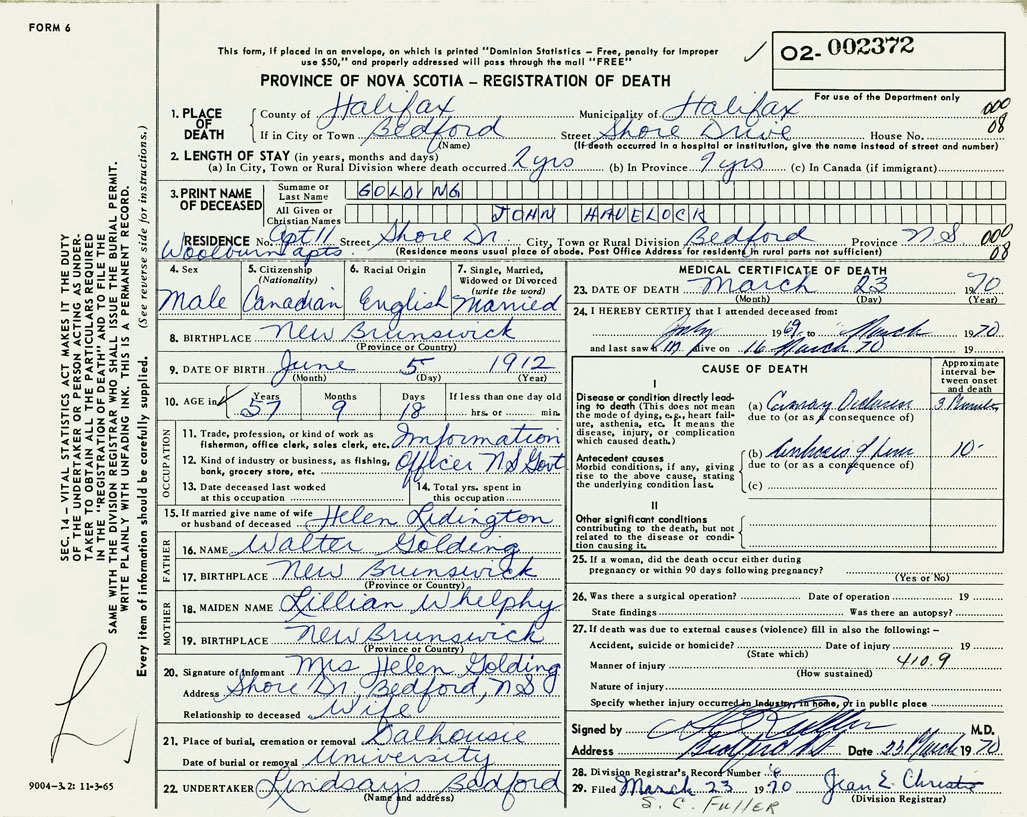 FORM 6
This form, if placed in an envelope, on which is printed "Dominion Statistics – Free, penalty for improper
use $50," and properly addressed will pass through the mail "FREE"
02- 002372
For use of the Department only
PROVINCE OF NOVA SCOTIA – REGISTRATION OF DEATH
1. PLACE OF DEATH
County of Halifax Municipality of Halifax 000
If in City or Town Bedford Street Shore Drive House No. 08
(Name) (If death occurred in a hospital or institution, give the name instead of street and number)
2. LENGTH OF STAY (in years, months and days)
(a) In City, Town or Rural Division where death occurred 2 yrs (b) In Province 9 yrs (c) In Canada (if immigrant)
3. PRINT NAME OF DECEASED
Surname or Last Name GOLDING
All Given or Christian Names JOHN HAVELOCK
RESIDENCE No. Apt 11 Street Shore Dr City, Town or Rural Division Bedford Province N S 000
Woolburn apts. (Residence means usual place of abode. Post Office Address for residents in rural parts not sufficient) 08
4. Sex
Male
5. Citizenship (Nationality)
Canadian
6. Racial Origin
English
7. Single, Married, Widowed or Divorced (write the word)
Married
8. BIRTHPLACE New Brunswick
(Province or Country)
9. DATE OF BIRTH June 5 1912
(Month) (Day) (Year)
10. AGE in Years Months Days If less than one day old
57 9 18 hrs. or min.
OCCUPATION
11. Trade, profession, or kind of work as fisherman, office clerk, sales clerk, etc. Information
12. Kind of industry or business, as fishing, bank, grocery store, etc. Officer N S Govt
13. Date deceased last worked at this occupation
14. Total yrs. spent in this occupation
15. If married give name of wife or husband of deceased Helen Lidington
FATHER
16. NAME Walter Golding
17. BIRTHPLACE New Brunswick
(Province or Country)
MOTHER
18. MAIDEN NAME Lillian Whelphy
19. BIRTHPLACE New Brunswick
(Province or Country)
20. Signature of Informant Mrs Helen Golding
Address Shore Dr. Bedford, N S
Relationship to deceased Wife
21. Place of burial, cremation or removal Dalhousie
Date of burial or removal University
22. UNDERTAKER Lindsay's Bedford
(Name and address)
MEDICAL CERTIFICATE OF DEATH
23. DATE OF DEATH March 23 1970
(Month) (Day) (Year)
24. I HEREBY CERTIFY that I attended deceased from:
July 1969 to March 1970
and last saw him alive on 16 March 70 19
CAUSE OF DEATH
Approximate interval between onset and death
I
Disease or condition directly leading to death (This does not mean the mode of dying, e.g., heart failure, asthenia, etc. It means the disease, injury, or complication which caused death.)
(a)
due to (or as a consequence of)
Antecedent causes
Morbid conditions, if any, giving rise to the above cause, stating the underlying condition last.
(b)
due to (or as a consequence of)
(c)
II
Other significant conditions
contributing to the death, but not related to the disease or condition causing it.
25. If a woman, did the death occur either during
pregnancy or within 90 days following pregnancy?
(Yes or No)
26. Was there a surgical operation? Date of operation 19
State findings Was there an autopsy?
27. If death was due to external causes (violence) fill in also the following: –
Accident, suicide or homicide? Date of injury 19
(State which)
Manner of injury 410.9
(How sustained)
Nature of injury
Specify whether injury occurred in industry, in home, or in public place
Signed by M.D.
Address Date 23 March 1970
28. Division Registrar's Record Number
29. Filed March 23 1970 Jean E. Christie
(Division Registrar)
S. C. FULLER
SEC. 14 – VITAL STATISTICS ACT MAKES IT THE DUTY
OF THE UNDERTAKER OR PERSON ACTING AS UNDER-
TAKER TO OBTAIN ALL THE PARTICULARS REQUIRED
IN THE "REGISTRATION OF DEATH" AND TO FILE THE
SAME WITH THE DIVISION REGISTRAR WHO SHALL ISSUE THE BURIAL PERMIT.
WRITE PLAINLY WITH UNFADING INK. THIS IS A PERMANENT RECORD.
Every item of information should be carefully supplied. (See reverse side for instructions.)
9004-3.2: 11-3-65